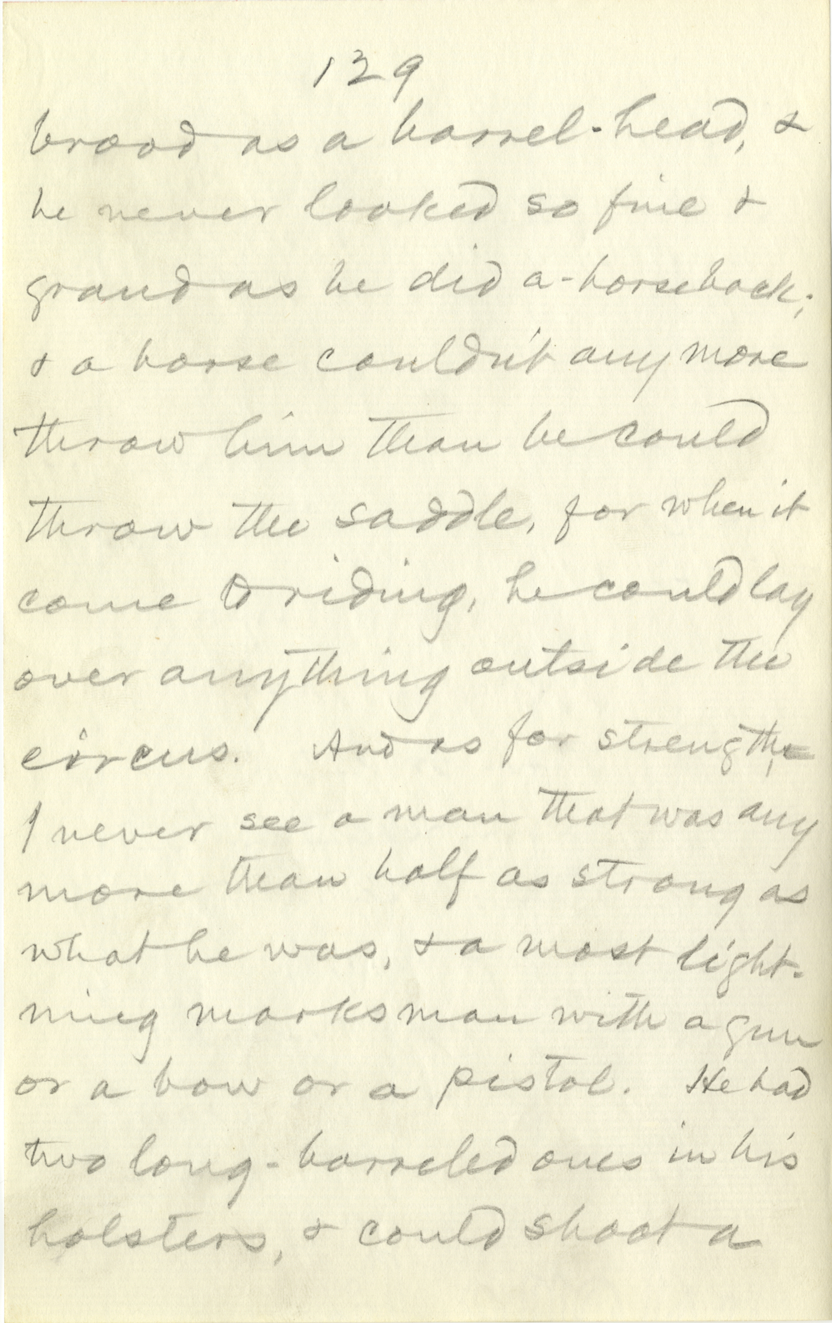 129
broad as a barrel-head, &
he never looked so fine &
grand as he did a-horseback;
& a horse couldn't any more
throw him than he could
throw the saddle, for when it
come to riding, he could lay
over anything outside the
circus. And as for strength,
I never see a man that was any
more than half as strong as
what he was, & a most light-
ning marksman with a gun
or a bow or a pistol. He had
two long-barreled ones in his
holsters, & could shoot a